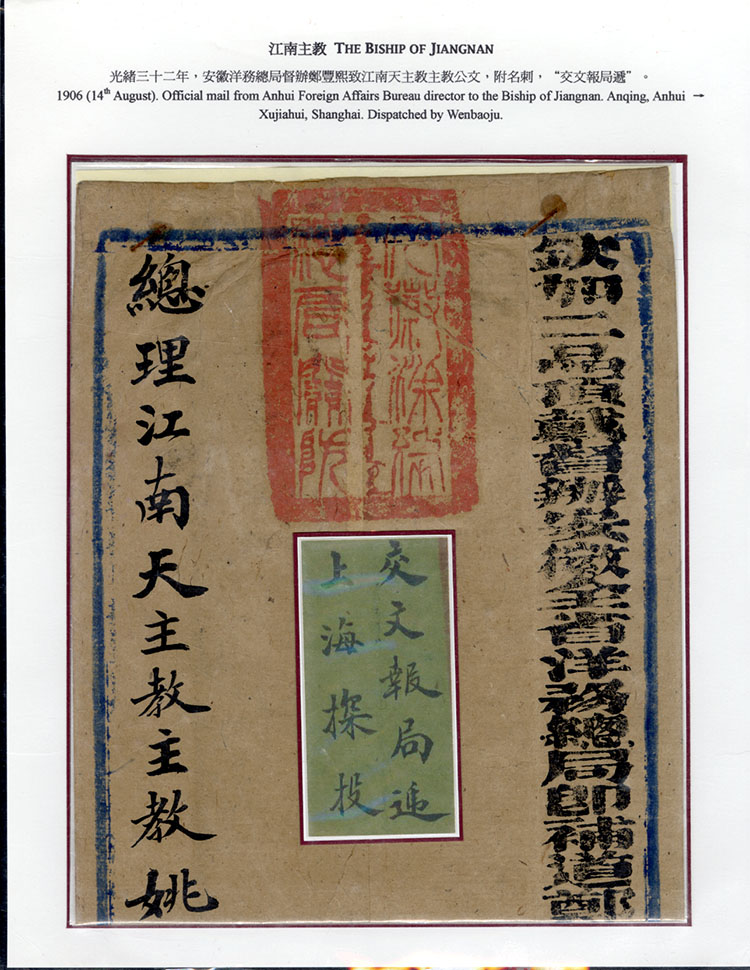 江南主教 THE BISHIP OF JIANGNAN
光緒三十二年，安徽洋務總局督辦鄭豐熙致江南天主教主教公文，附名刺，“交文報局遞”。
1906 (14th August). Official mail from Anhui Foreign Affairs Bureau director to the Biship of Jiangnan. Anqing, Anhui →
Xujiahui, Shanghai. Dispatched by Wenbaoju.
欽加二品頂戴督辦安徽全省洋務總局即補道鄭
總局關防
交文報局遞
上海探投
總理江南天主教主教姚